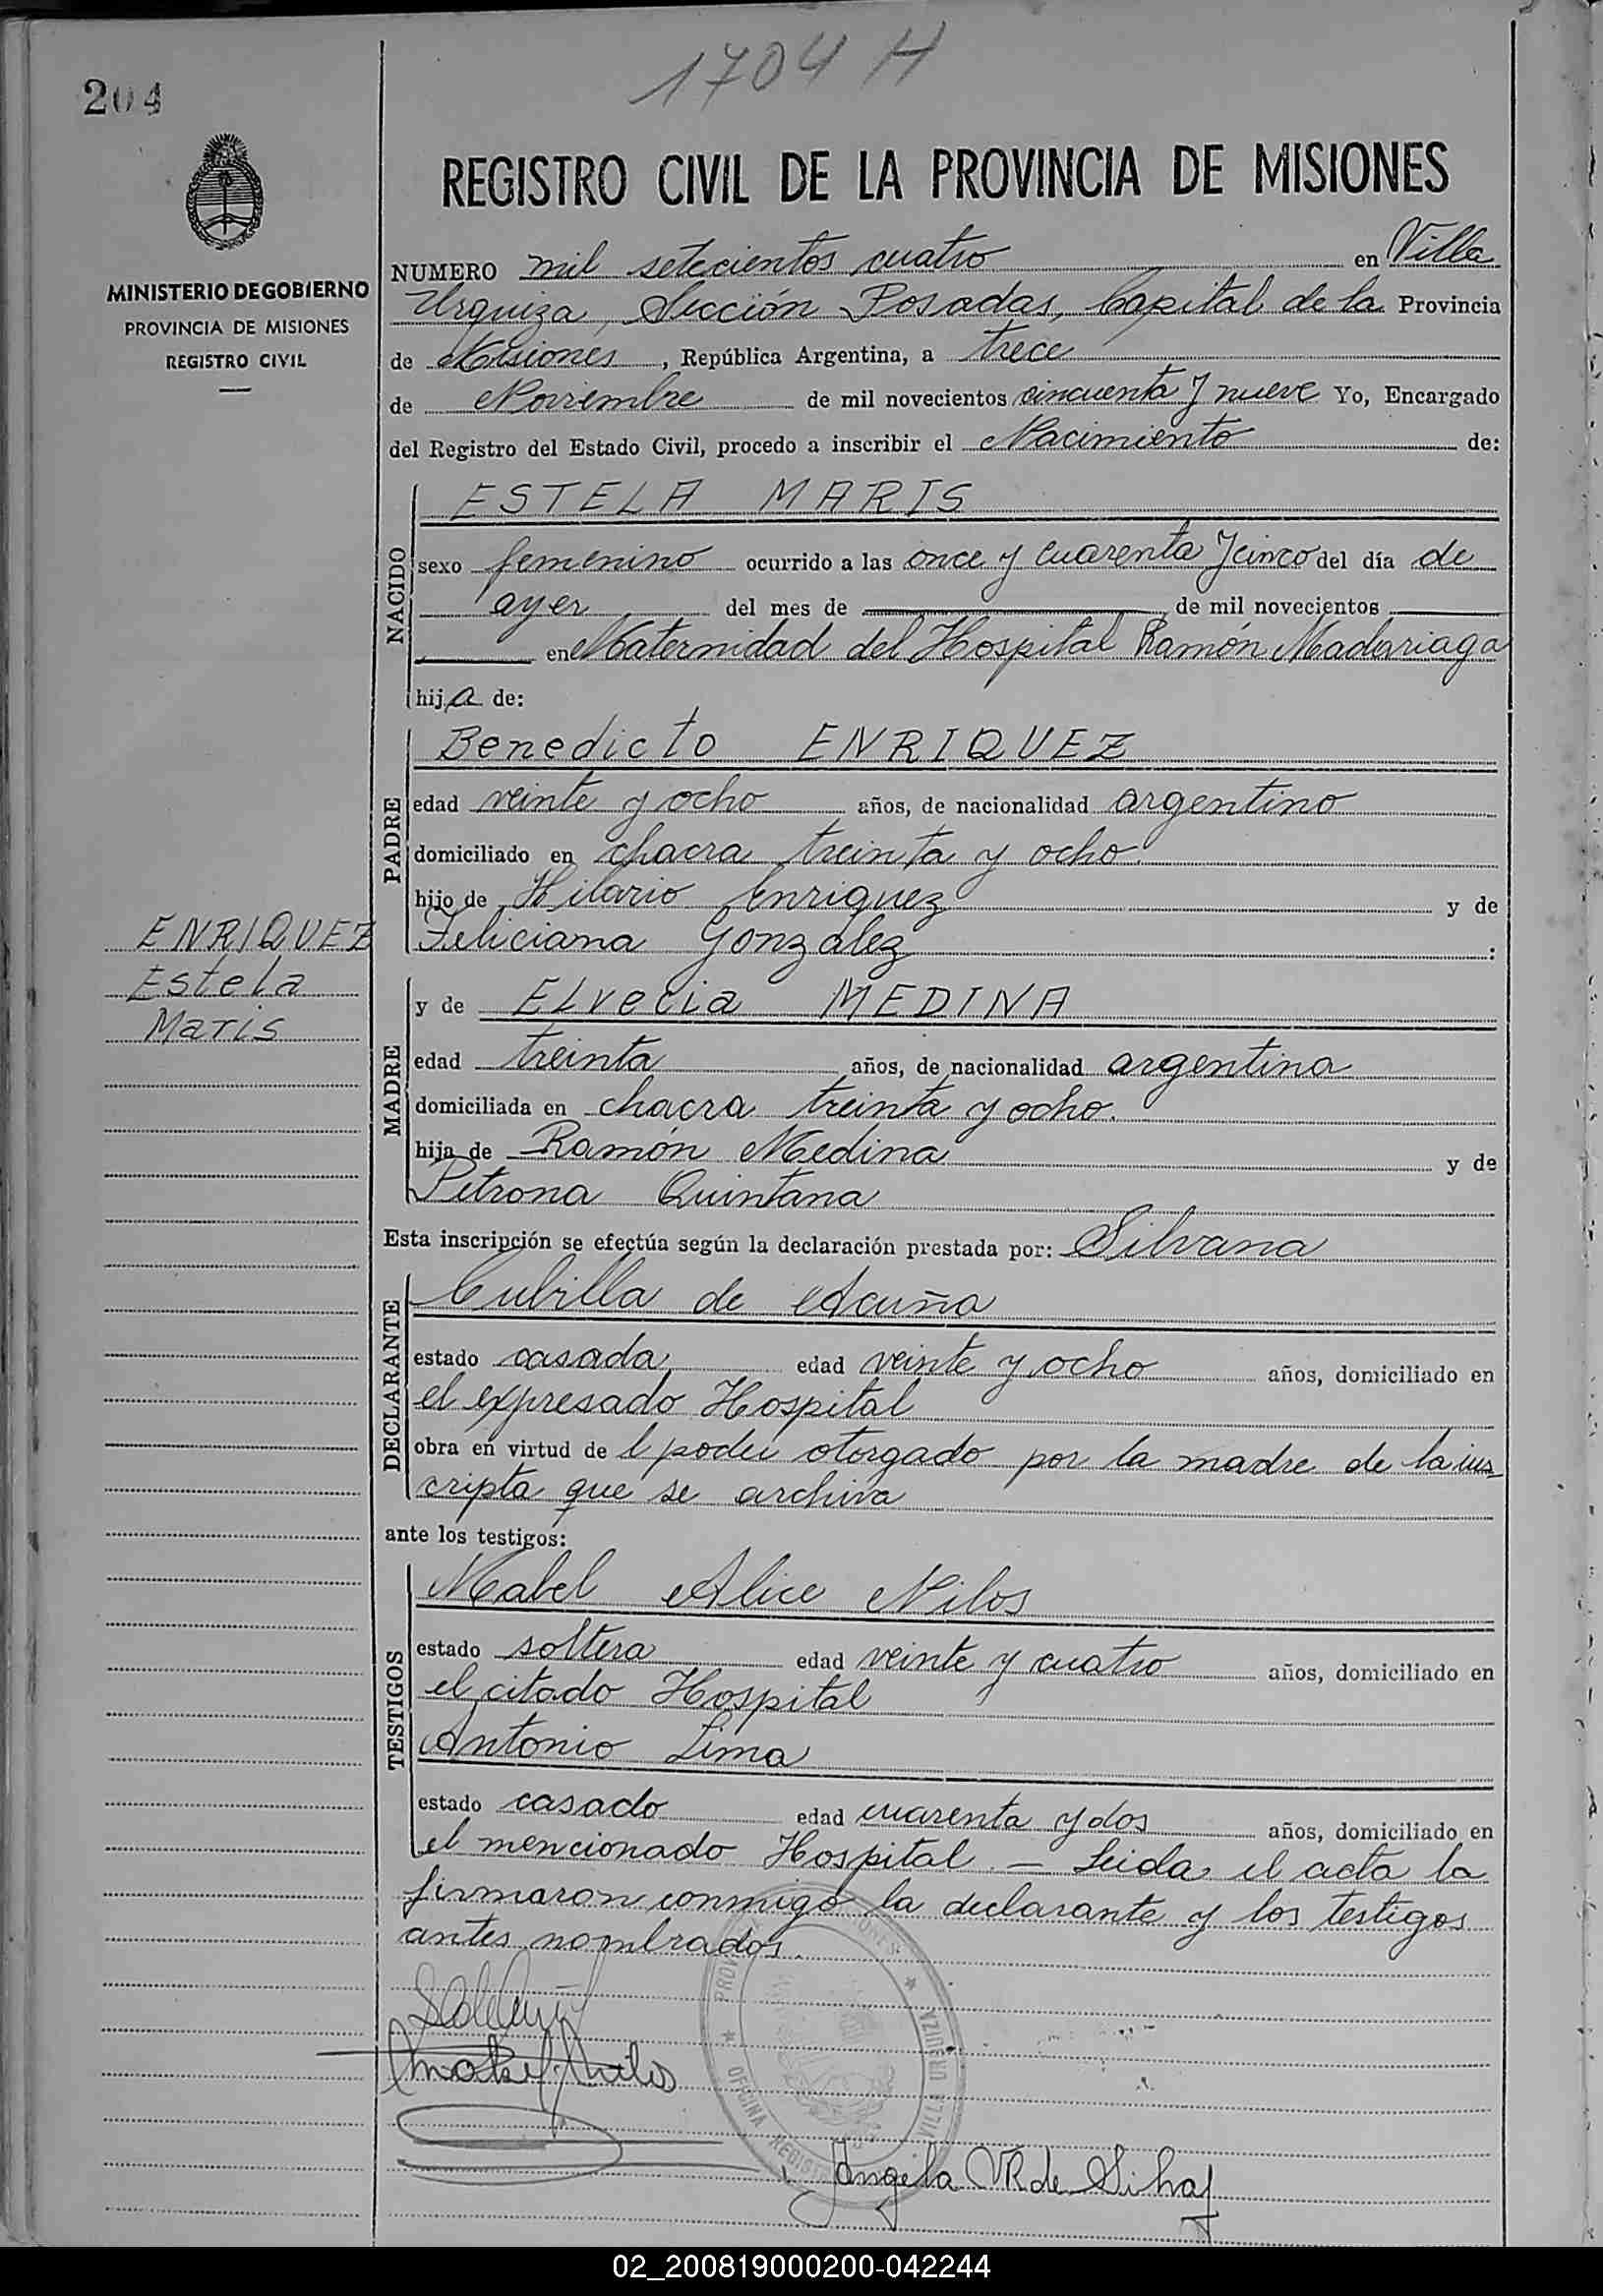 1704 H
204
MINISTERIO DE GOBIERNO
PROVINCIA DE MISIONES
REGISTRO CIVIL
REGISTRO CIVIL DE LA PROVINCIA DE MISIONES
NUMERO mil setecientos cuatro en Villa
Urquiza, Sección Posadas, Capital de la Provincia
de Misiones, República Argentina, a trece
de Noviembre de mil novecientos cincuenta y nueve Yo, Encargado
del Registro del Estado Civil, procedo a inscribir el Nacimiento de:
NACIDO
ESTELA MARIS
sexo femenino ocurrido a las once y cuarenta y cinco del día de
ayer del mes de de mil novecientos
en Maternidad del Hospital Ramón Madariaga
hija de:
PADRE
Benedicto ENRIQUEZ
edad veinte y ocho años, de nacionalidad argentino
domiciliado en chacra treinta y ocho.
hijo de Hilario Enriquez y de
Feliciana Gonzalez :
ENRIQUEZ
Estela
Maris
MADRE
y de ELvecia MEDINA
edad treinta años, de nacionalidad argentina
domiciliada en chacra treinta y ocho.
hija de Ramón Medina y de
Petrona Quintana
Esta inscripción se efectúa según la declaración prestada por: Silvana
DECLARANTE
Cubilla de Acuña
estado casada edad veinte y ocho años, domiciliado en
el expresado Hospital
obra en virtud de l poder otorgado por la madre de la ins-
cripta que se archiva
ante los testigos:
TESTIGOS
Mabel Alice Nilos
estado soltera edad veinte y cuatro años, domiciliado en
el citado Hospital
Antonio Lima
estado casado edad cuarenta y dos años, domiciliado en
el mencionado Hospital. — Leida el acta la
firmaron conmigo la declarante y los testigos
antes nombrados.
OFICINA VILLA URQUIZA
Angela VR de
02_200819000200-042244